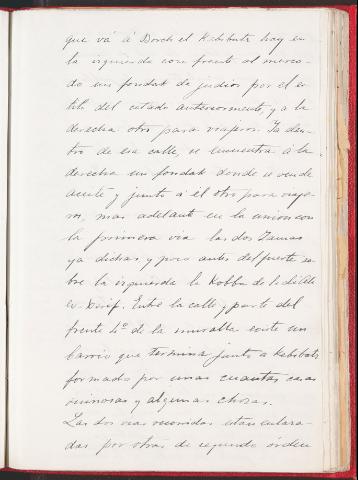 que vá á Dorch el Kebibatz hay en
la izquierda con frente al merca-
do un fondak de judios por el es-
tilo del citado anteriormente, y a la
derecha otro para viajeros. Ya den-
tro de esa calle, se encuentra á la
derecha un fondak donde se vende
aceite y junto á él otro para viaje-
ros, mas adelante en la union con
la primera via las dos Zauias
ya dichas y poco antes del puente so-
bre la izquierda la Kobba de
Entre la calle y parte del
frente 4º de la muralla existe un
barrio que termina junto a Kebibatz
formado por unas cuantas casas
ruinosas y algunas chozas.
Las dos vias reunidas están enlaza-
das por otras de segundo orden